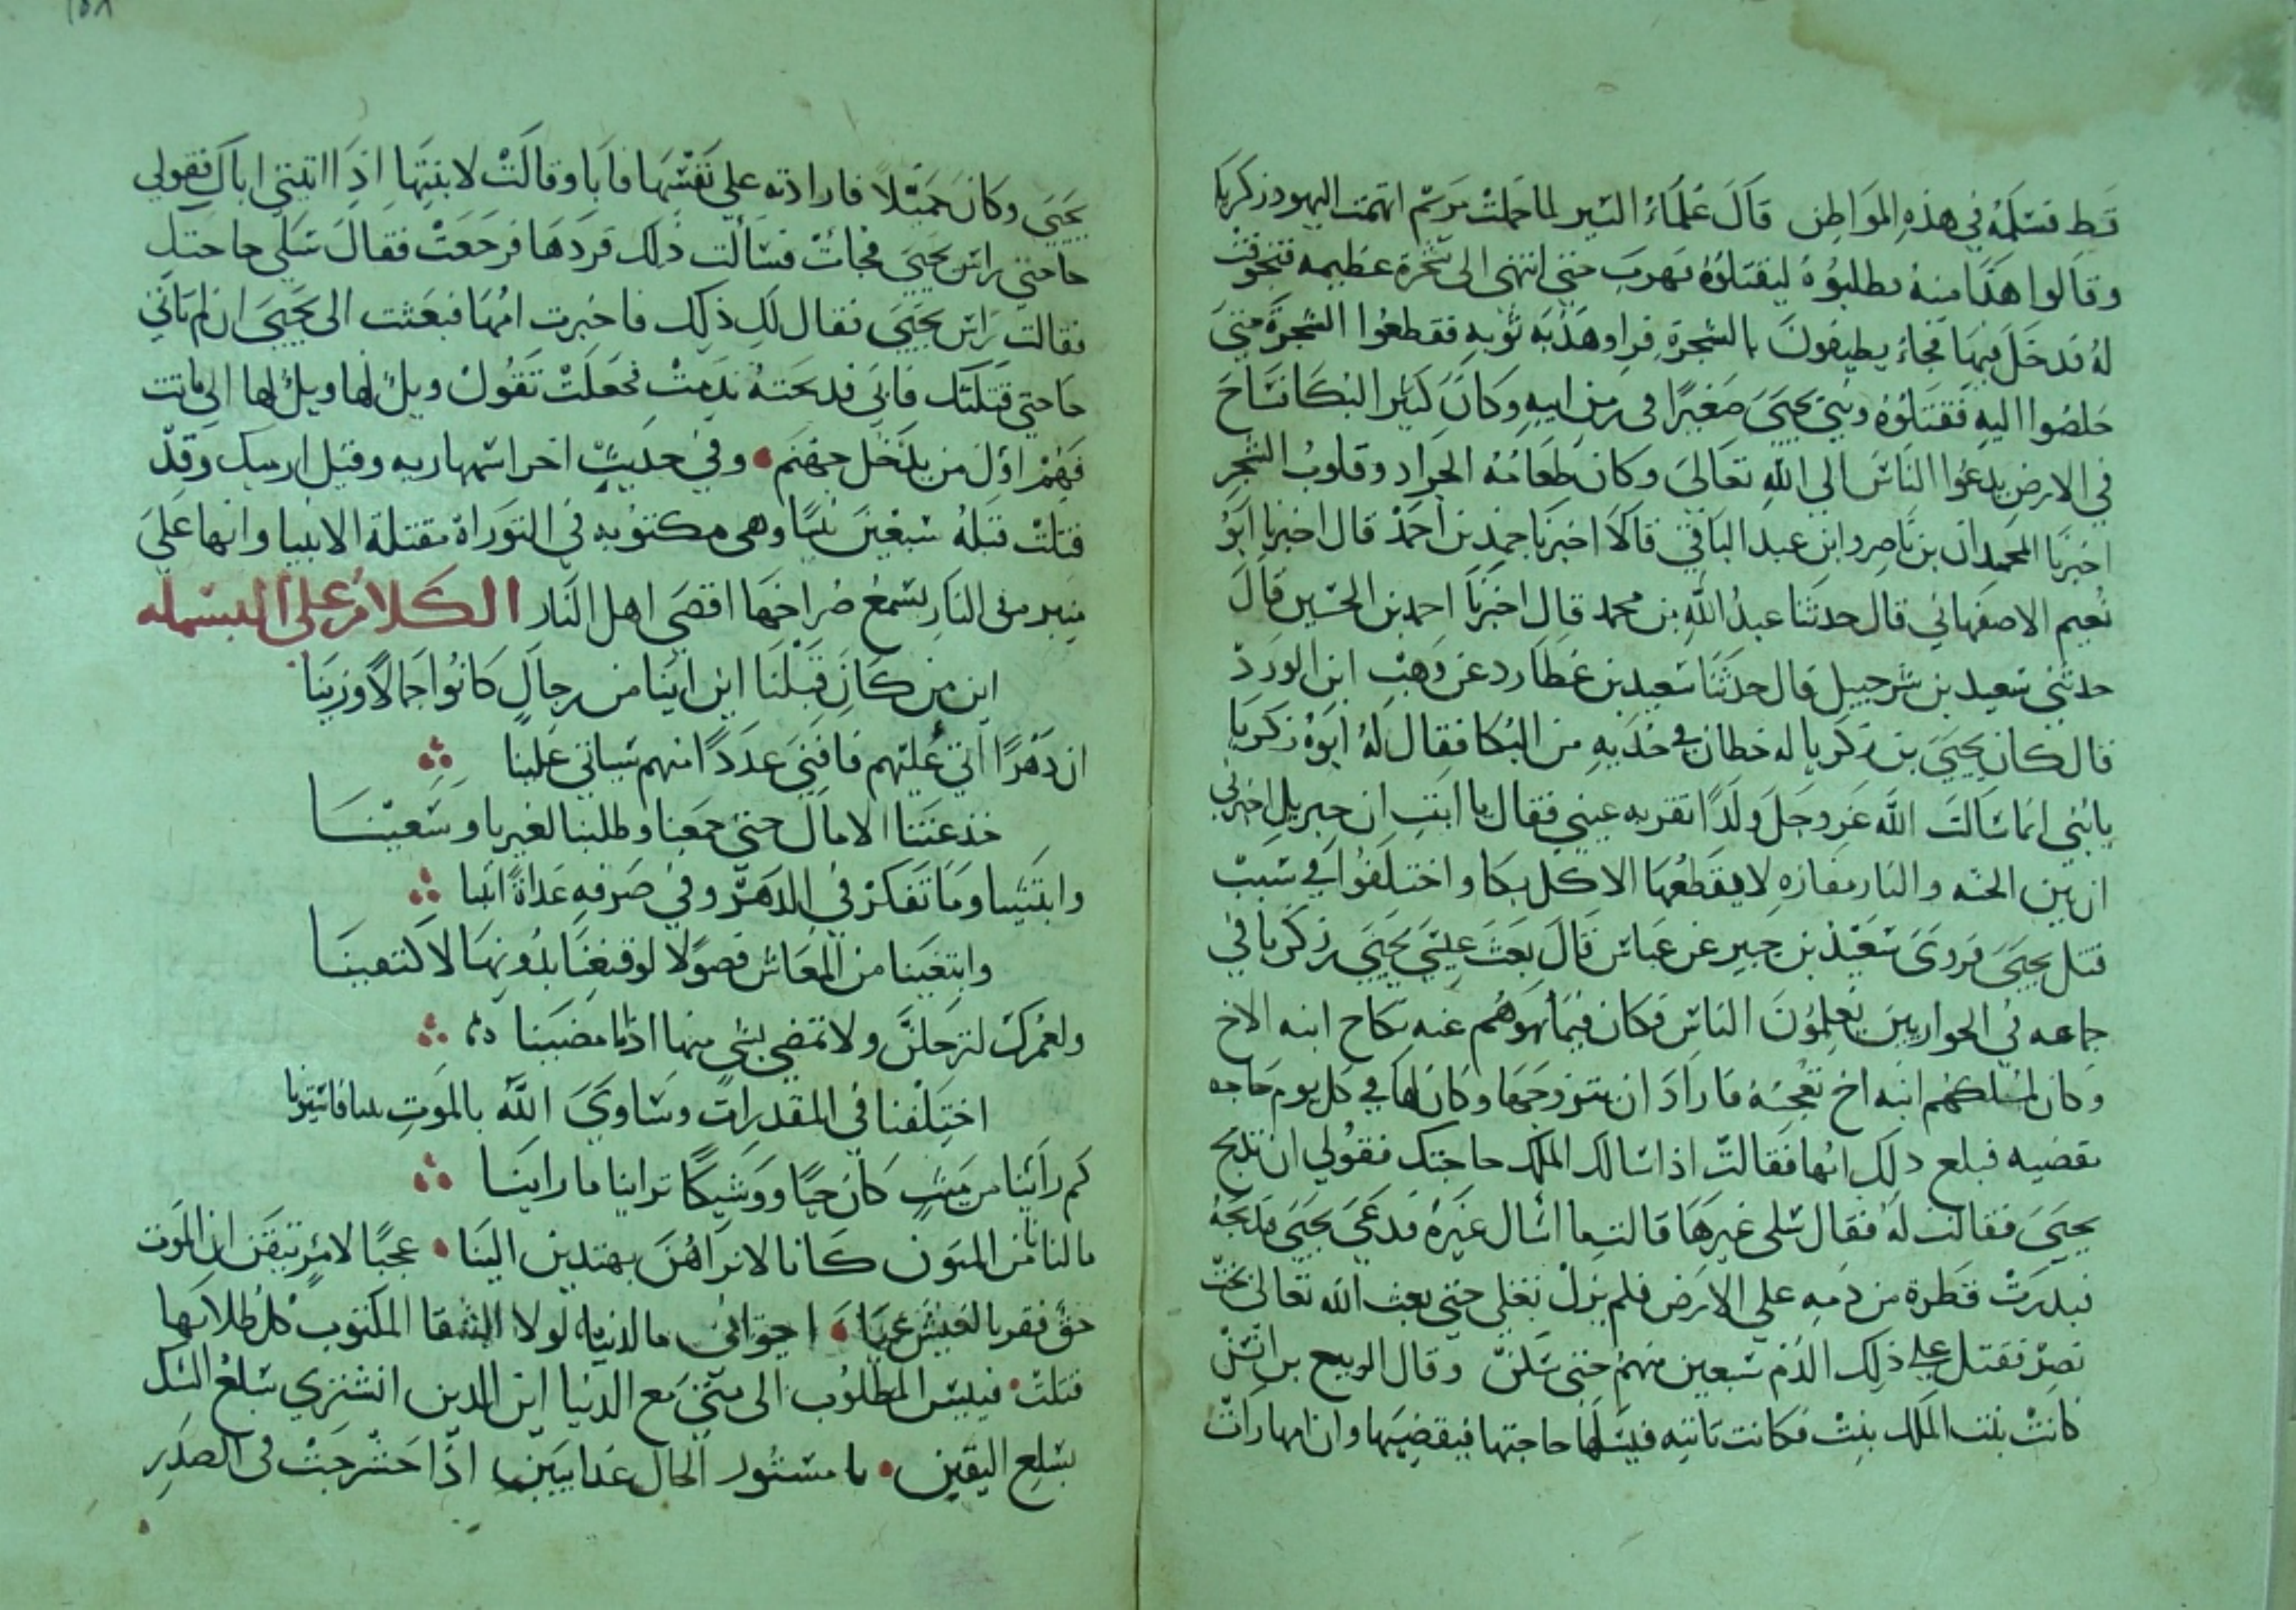 قط فسلمه في هذه المواطن قال علماء السير لما حملت مريم اتهمت اليهود زكريا
وقالوا هذا منه فطلبوه ليقتلوه فهرب حتى انتهى الى شجرة عظيمه فتجوفت
له فدخل فيها فجاء يطيفون بالشجرة فراو هدبه ثوبه فقطعوا الشجرة حتى
خلصوا اليه فقتلوه ونبئ يحيى صغيرا في زمن ابيه وكان كثير البكا فساح
في الارض يدعوا الناس الى الله تعالى وكان طعامه الجراد وقلوب الشجر
اخبرنا المحمدان بن ناصر وابن عبد الباقي قالا اخبرنا حمد بن احمد قال اخبرنا ابو
نعيم الاصفهاني قال حدثنا عبد الله بن محمد قال اخبرنا احمد بن الحسين قال
حدثني سعيد بن شرحبيل قال حدثنا سعيد بن عطارد عن وهب ابن الورد
قال كان يحيى بن زكريا له خطان في خديه من البكا فقال له ابوه زكريا
يا بني انما سالت الله عز وجل ولدا تقر به عيني فقال يا ابت ان جبريل اخبرني
ان بين الجنه والنار مفازه لا يقطعها الا كل بكا واختلفوا في سبب
قتل يحيى فروى سعيد بن جبير عن عباس قال بعث عيسى يحيى زكريا في
جماعه في الحواريين يعلمون الناس فكان فيما نهوهم عنه نكاح ابنه الاخ
وكان لملكهم ابنه اخ تعجبه فاراد ان يتزوجها وكان لها في كل يوم حاجه
يقضيه فبلع ذلك امها فقالت اذا سالك الملك حاجتك فقولي ان تذبح
يحيى فقالت له فقال سلى غيرها قالت ما اسال غيره فدعى يحيى فذبحه
فبدرت قطرة من دمه على الارض فلم يزل تغلى حتى بعث الله تعالى بخت
نصر فقتل على ذلك الدم سبعين منهم حتى سكن وقال الربيع بن انس
كانت بنت الملك بنت فكانت تاتيه فيسلها حاجتها فيقضيها وان امها رات
يحيى وكان جميلا فارادته على نفسها فابا وقالت لابنتها اذا اتيتي اباك فقولي
حاجتي راس يحيى فجات فسالت ذلك فردها فرجعت فقال سلي حاجتك
فقالت راس يحيى فقال لك ذلك فاخبرت امها فبعثت الى يحيى ان لم تاتي
حاجتي قتلتك فابي فذبحته ندمت فجعلت تقول ويل لها ويل لها الى ماتت
فهم اول من يدخل جهنم وفي حديث اخر اسمها ربه وقيل ارميل وقد
قتلت قبله سبعين نبيا وهى مكتوبه في التوراة مقتلة الانبيا وانها على
منبر من النار يسمع صراخها اقصى اهل النار الكلام على البسمله
اين من كان قبلنا اين اينا من رجال كانوا جمالا وزينا
ان دهرا اتي عليهم فافنى عددا منهم سياتي علينا
خدعتنا الامال حتى جمعنا وطلبنا لغيرنا وسعينا
وابتنينا وما تفكر في الدهر وفي صرفه غداة ابنينا
وابتغينا من المعاش فضولا لو قنعنا بدونها لاكتفينا
ولعمرك لترحلن ولا نمضي بشي منها اذا ما مضينا
اختلفنا في المقدرات وساوى الله بالموت بيننا فاستوينا
كم راينا من ميت كان حيا ووشيكا ترانيا ما راينا
ما لنا نامن المنون كانا لا نراهن يهتدين الينا عجبا لامر تيقن ان الموت
حق فقر بالعيش عينا اخواني ما الدنيا لولا الشقا المكتوب كل طلابها
قتلت فبيس المطلوب الى متى مع الدنيا اين الدين اتشتري سلع الشك
بسلع اليقين يا مستور الحال غدا يبين اذا حشرجت في الصدر